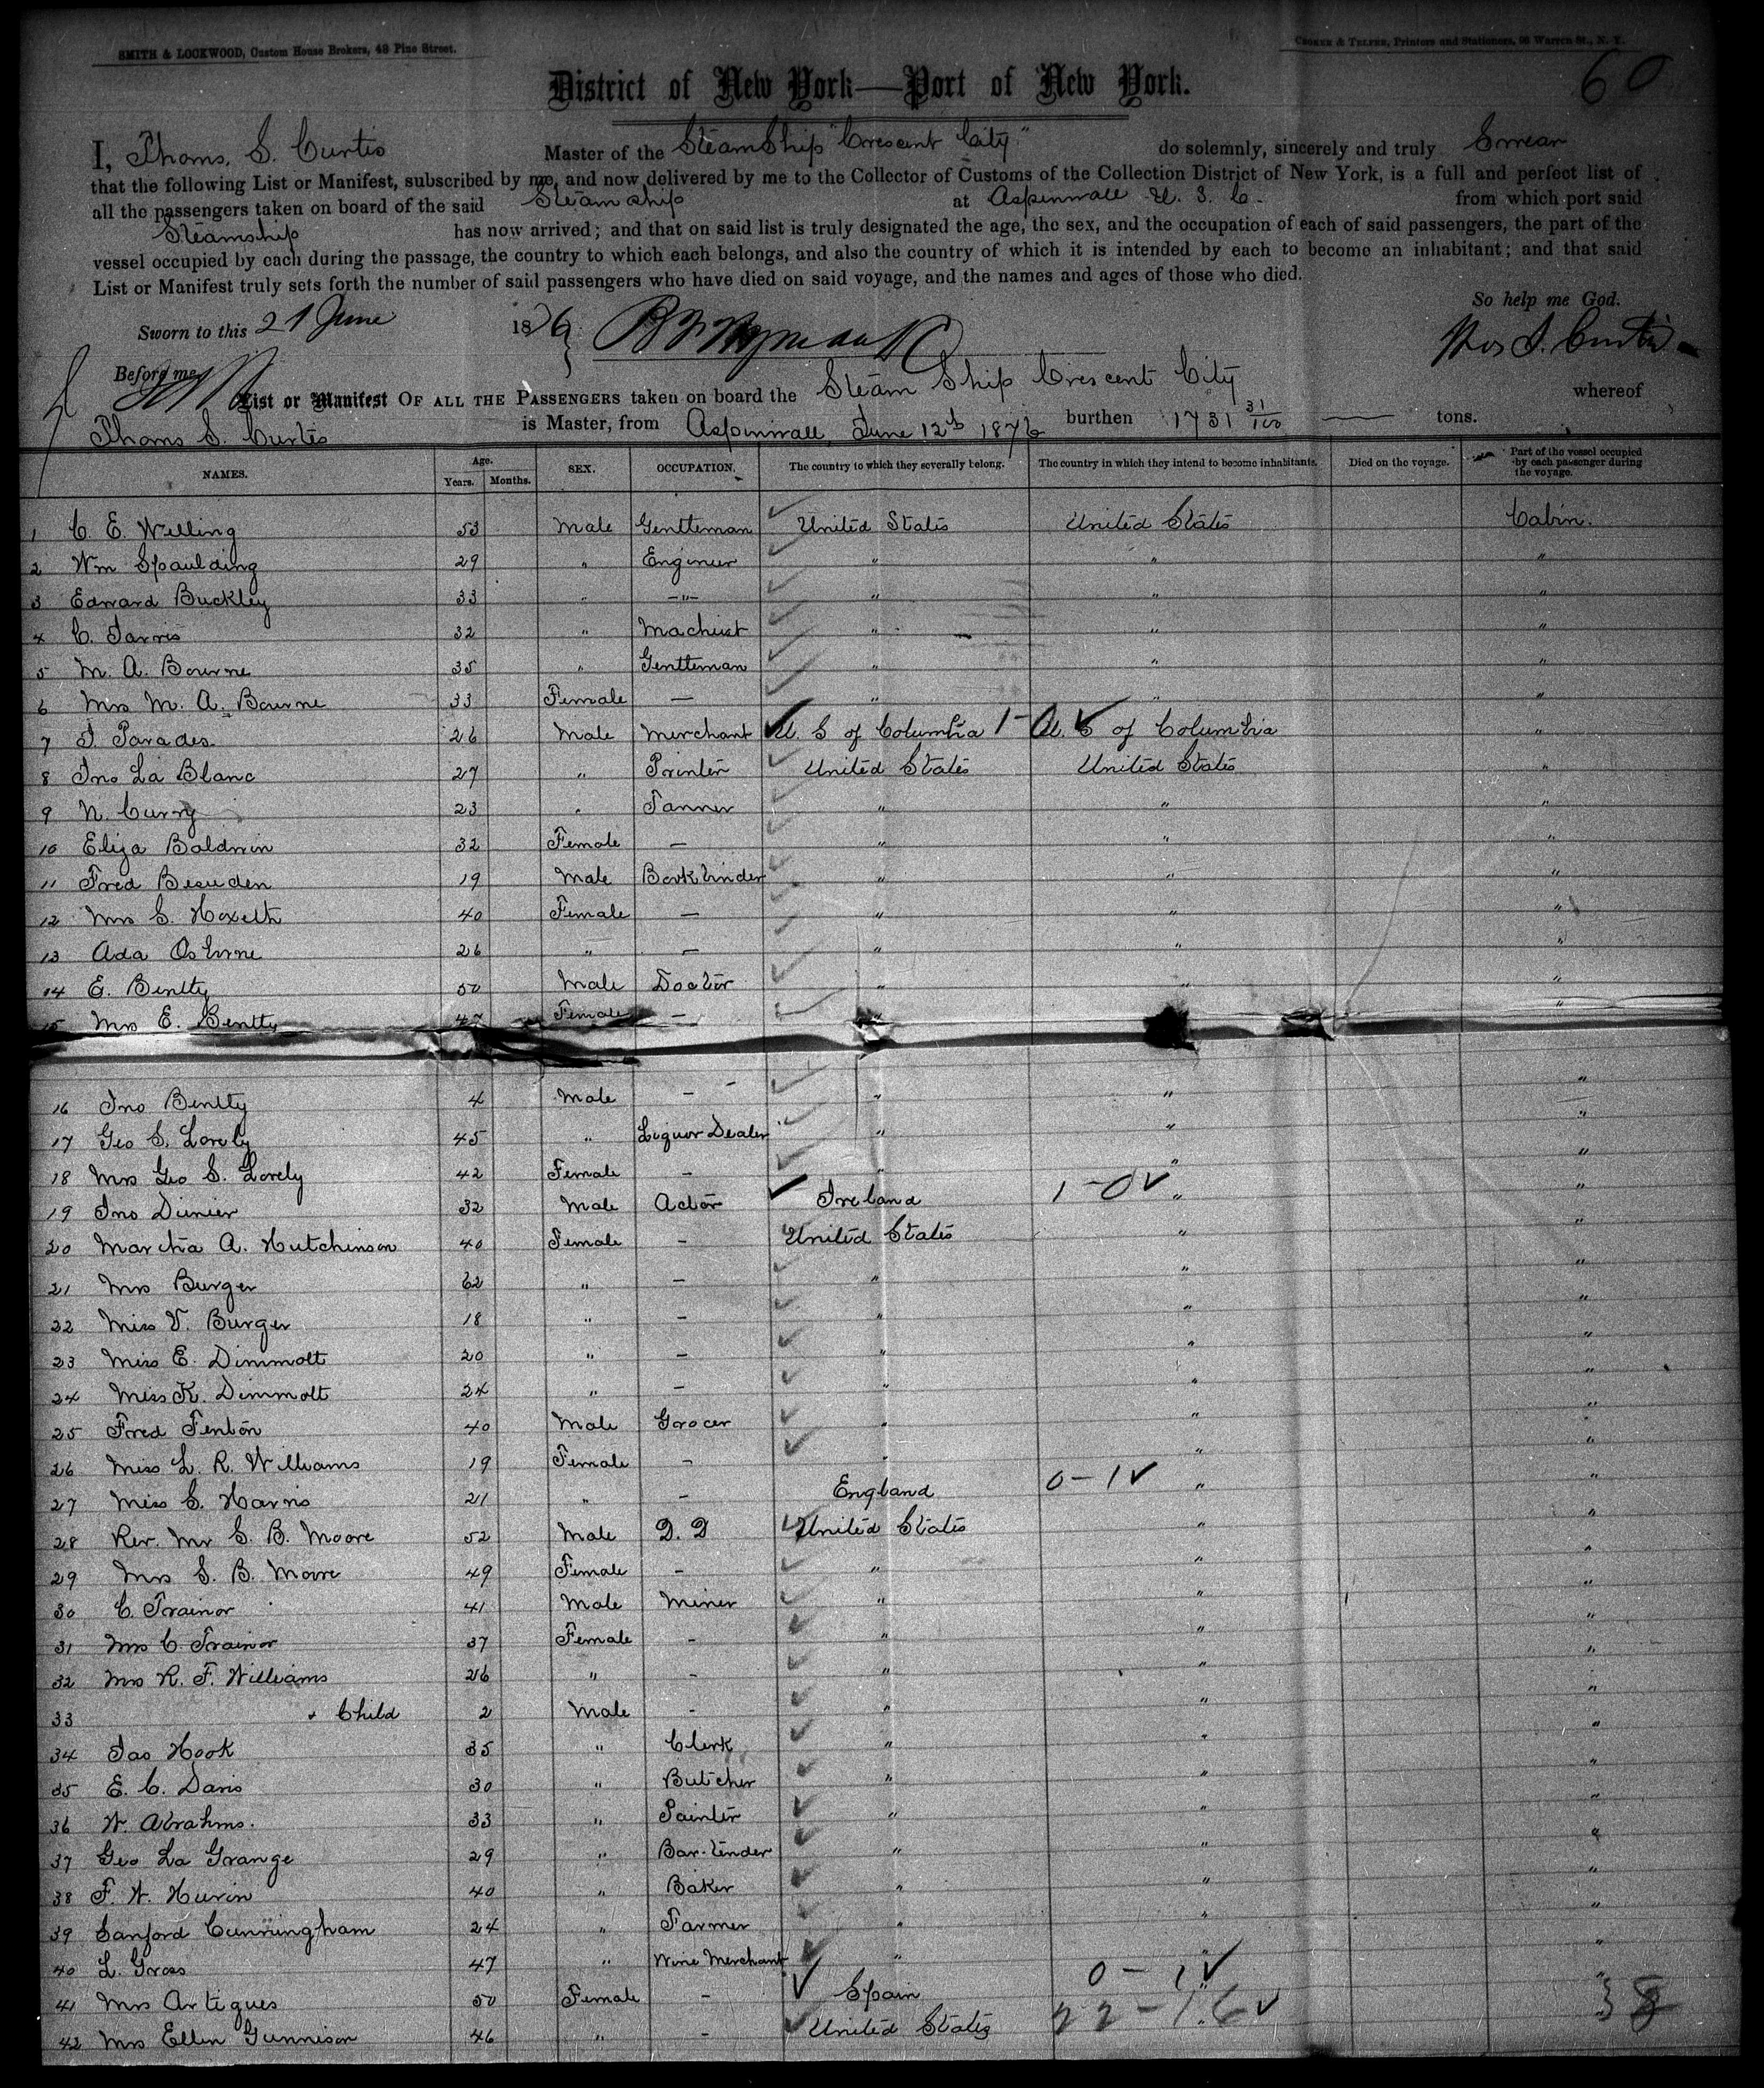 SMITH & LOCKWOOD, Custom House Brokers, 48 Pine Street.
CROKER & TELFER, Printers and Stationers, 66 Warren St., N. Y.
60
District of New York—Port of New York.
I, Thoms. S. Curtis Master of the SteamShip "Crescent City" do solemnly, sincerely and truly Swear
that the following List or Manifest, subscribed by me, and now delivered by me to the Collector of Customs of the Collection District of New York, is a full and perfect list of
all the passengers taken on board of the said Steamship at Aspinwall U. S. C. from which port said
Steamship has now arrived; and that on said list is truly designated the age, the sex, and the occupation of each of said passengers, the part of the
vessel occupied by each during the passage, the country to which each belongs, and also the country of which it is intended by each to become an inhabitant; and that said
List or Manifest truly sets forth the number of said passengers who have died on said voyage, and the names and ages of those who died.
So help me God.
Sworn to this 21 June 1876
Thos S. Curtis
Before me
List or Manifest OF ALL THE PASSENGERS taken on board the Steam Ship Crescent City whereof
Thoms S. Curtis is Master, from Aspinwall, June 12th 1876 burthen 1731 31/100 tons.
NAMES. Age. Years. Months. SEX. OCCUPATION. The country to which they severally belong. The country in which they intend to become inhabitants. Died on the voyage. Part of the vessel occupied by each passenger during the voyage.
1 C. E. Welling 53 Male Gentleman United States United States Cabin.
2 Wm Spaulding 29 " Engineer " " "
3 Edward Buckley 33 " —"— " " "
4 C. Jarvis 32 " Machist " " "
5 M. A. Bourne 35 " Gentleman " " "
6 Mrs M. A. Bourne 33 Female — " " "
7 J. Parades 26 Male Merchant U. S of Columbia 1- U. S of Columbia "
8 Jno La Blanc 27 " Printer United States United States "
9 N. Curry 23 " Tanner " " "
10 Eliza Baldwin 32 Female — " " "
11 Fred Beauden 19 Male Bookbinder " " "
12 Mrs S. Hoxeth 40 Female — " " "
13 Ada Osborne 26 " — " " "
14 E. Bentty 50 Male Doctor " " "
15 Mrs E. Bentty 47 Female — " "
16 Jno Bentty 4 Male - " " "
17 Geo S. Lovely 45 " Liquor Dealer " " "
18 Mrs Geo S. Lovely 42 Female - " " "
19 Jno Dunier 32 Male Actor Ireland 1-0 " "
20 Martha A. Hutchinson 40 Female - United States " "
21 Mrs Burger 62 " - " " "
22 Miss V. Burger 18 " - " " "
23 Miss E. Dimmott 20 " - " " "
24 Miss K. Dimmott 24 " - " " "
25 Fred Fenton 40 Male Grocer " " "
26 Miss L. R. Williams 19 Female - " " "
27 Miss S. Harris 21 " - England 0-1 " "
28 Rev. Mr S. B. Moore 52 Male D. D United States " "
29 Mrs S. B. Moore 49 Female - " " "
30 C. Trainor 41 Male Miner " " "
31 Mrs C Trainor 37 Female - " " "
32 Mrs R. F. Williams 26 " - " " "
33 " Child 2 Male - " " "
34 Jas Hook 35 " Clerk " " "
35 E. C. Davis 30 " Butcher " " "
36 W. Abrahms. 33 " Painter " " "
37 Geo La Grange 29 " Bar-tender " " "
38 F. W. Hurin 40 " Baker " " "
39 Sanford Cunningham 24 " Farmer " " "
40 L. Gross 47 " Wine Merchant " " "
41 Mrs Artigues 50 Female - Spain 0-1 " "
42 Mrs Ellen Gunnison 46 " - United States 22-16 " " 38